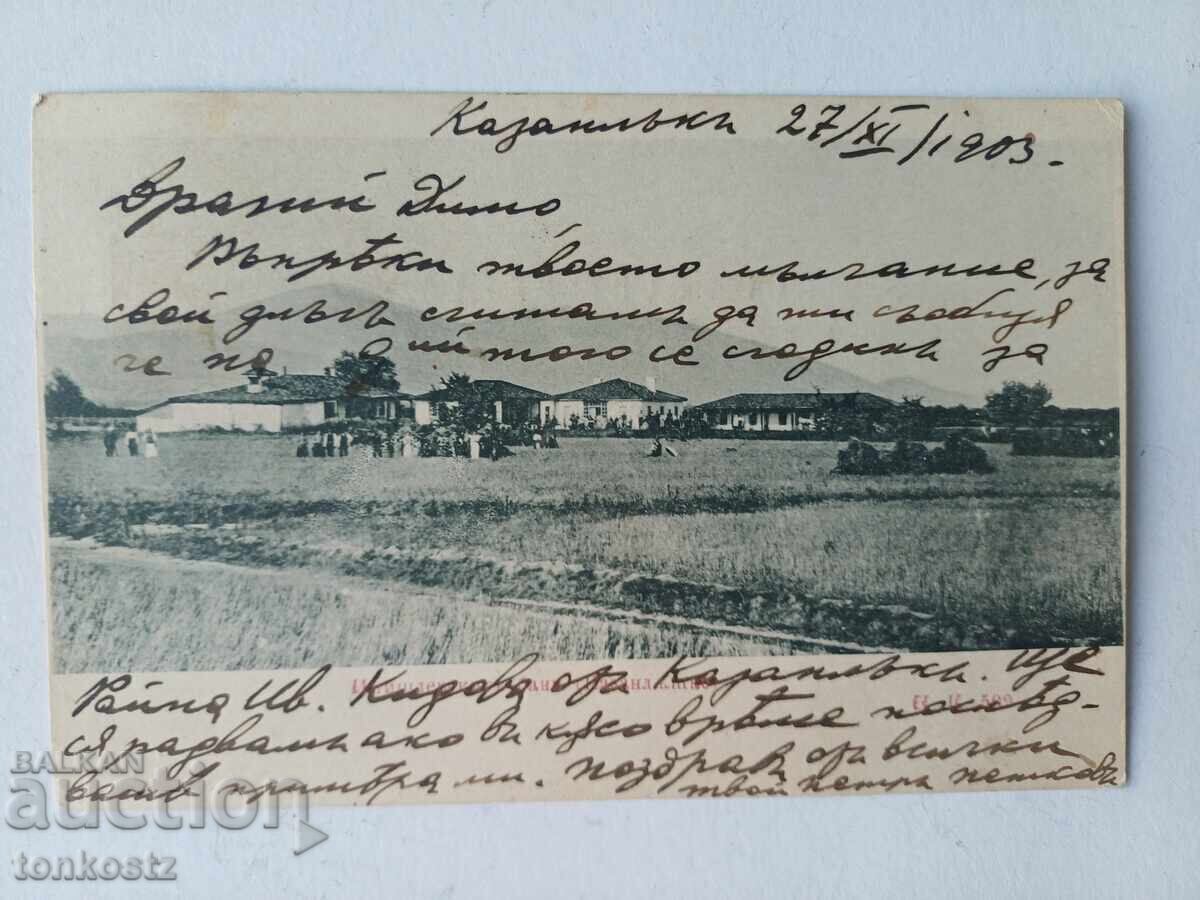 Казанлъкъ 27/XI/1903.
Драгий Димо,
Въпрѣки твоето мълчание, за
свой длъгъ считамъ да ти съобщя
че на ий того се сгодихъ за
Райна Ив. отъ Казанлъкъ. Ще
се радвамъ ако въ късо врѣме послѣд-
вашъ примѣра ми. поздрав отъ всички
твой петръ петковъ
№ 589
BALKAN
auction
tonkostz